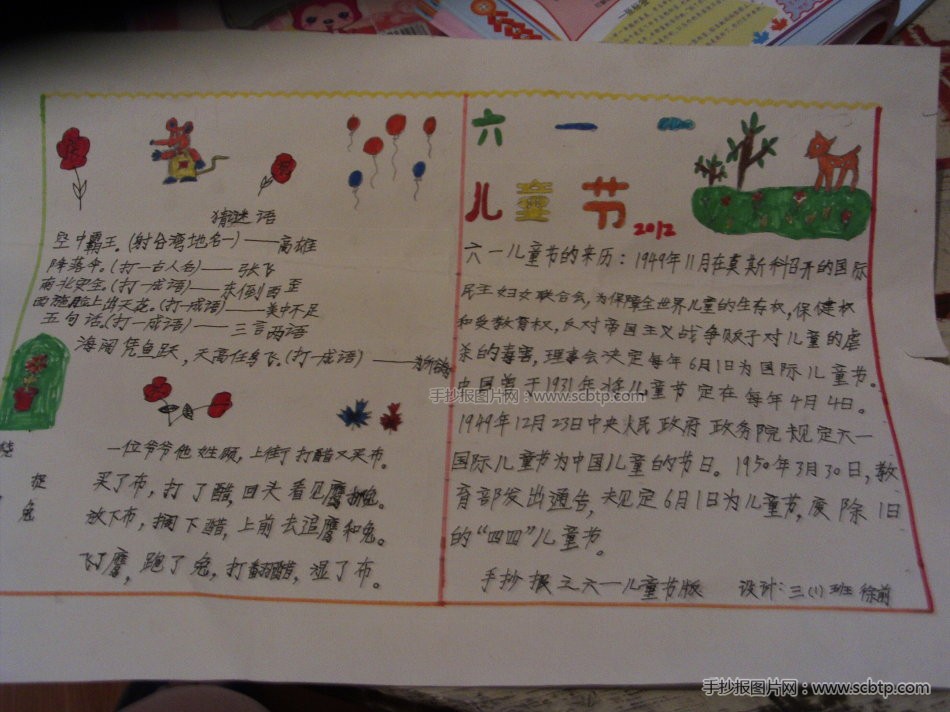 猜谜语
空中霸王。(射台湾地名一)——高雄
降落伞。(打一古人名)——张飞
南北安生。(打一成语)——东倒西歪
西施脸上出天花。(打一成语)——美中不足
五句话。(打一成语)——三言两语
海阔凭鱼跃,天高任鸟飞。(打一成语)——为所欲为
一位爷爷他姓顾,上街打醋又买布。
买了布,打了醋,回头看见鹰抓兔。
放下布,搁下醋,上前去追鹰和兔。
飞了鹰,跑了兔,打翻醋,湿了布。
捉
兔
六一
儿童节
2012
六一儿童节的来历:1949年11月在莫斯科召开的国际
民主妇女联合会,为保障全世界儿童的生存权,保健权
和受教育权,反对帝国主义战争贩子对儿童的虐
杀的毒害,理事会决定每年6月1日为国际儿童节。
中国曾于1931年将儿童节定在每年4月4日。
1949年12月23日中央人民政府政务院规定六一
国际儿童节为中国儿童的节日。1950年3月30日,教
育部发出通告,规定6月1日为儿童节,废除旧
的“四四”儿童节。
手抄报之六一儿童节版 设计:三(1)班 徐前
手抄报图片网:www.scbtp.com
手抄报图片网:www.scbtp.com